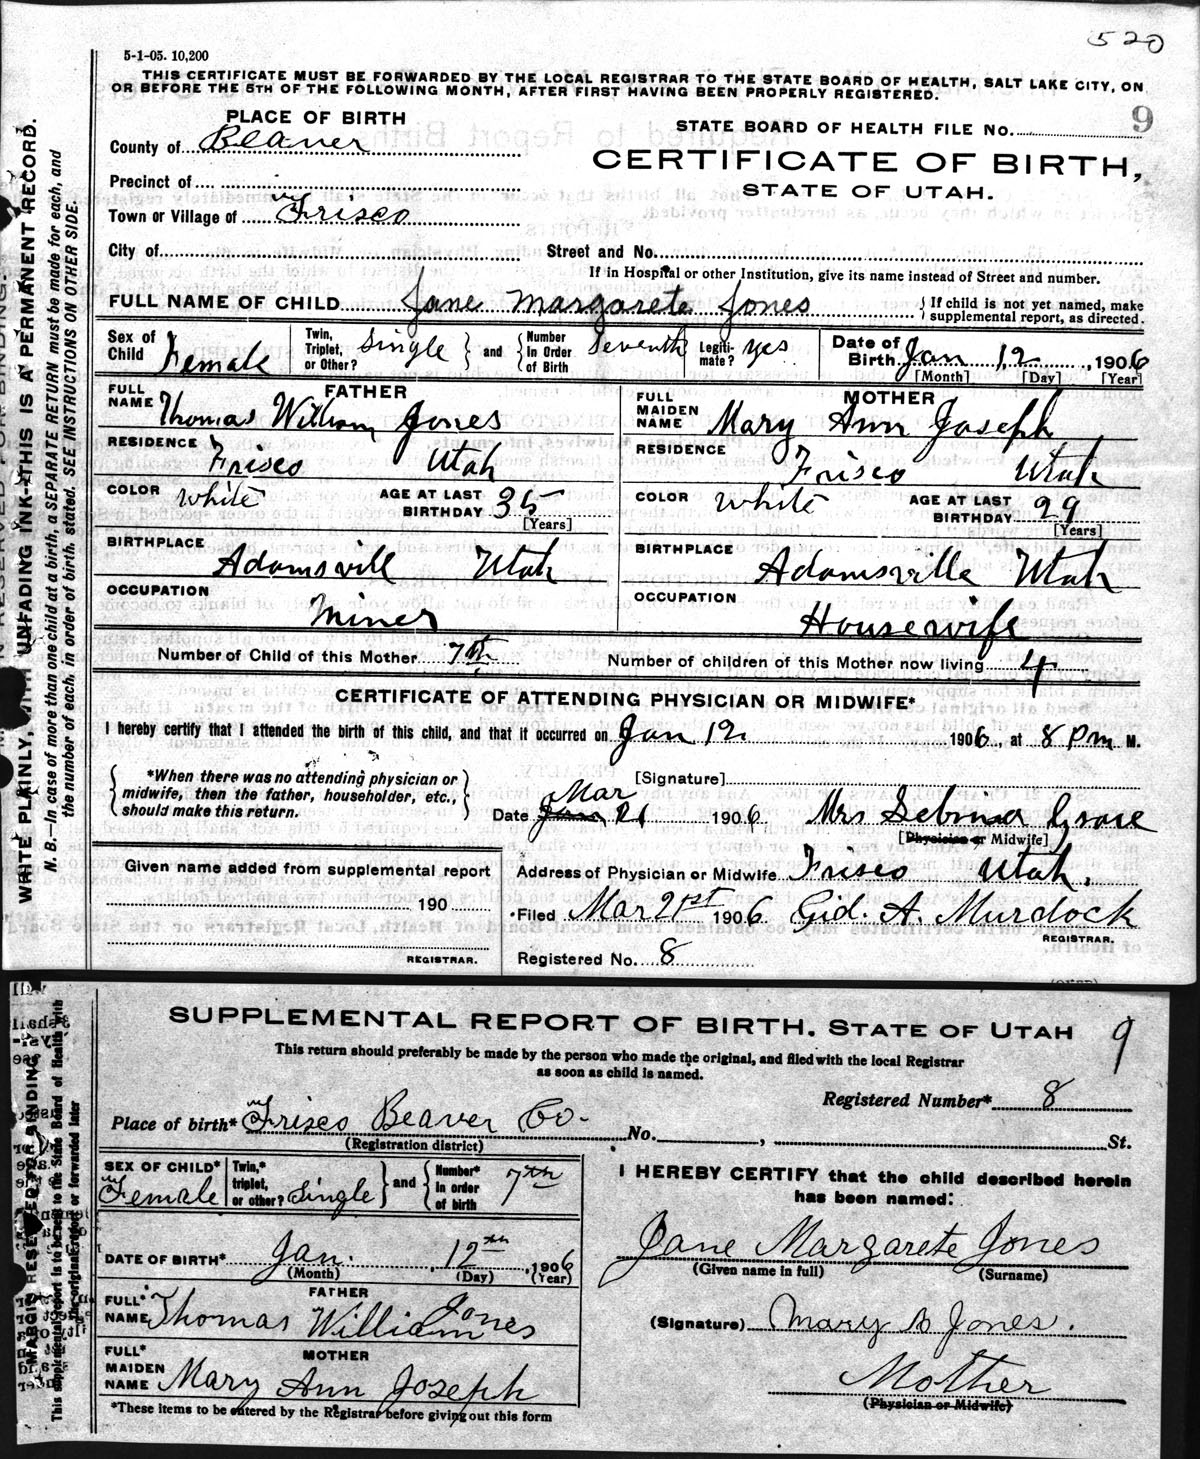 520
5-1-05. 10,200
THIS CERTIFICATE MUST BE FORWARDED BY THE LOCAL REGISTRAR TO THE STATE BOARD OF HEALTH, SALT LAKE CITY, ON
OR BEFORE THE 5TH OF THE FOLLOWING MONTH, AFTER FIRST HAVING BEEN PROPERLY REGISTERED.
PLACE OF BIRTH
County of Beaver
Precinct of
Town or Village of Frisco
City of
STATE BOARD OF HEALTH FILE No. 9
CERTIFICATE OF BIRTH,
STATE OF UTAH.
Street and No.
If in Hospital or other Institution, give its name instead of Street and number.
FULL NAME OF CHILD Jane Margarete Jones { If child is not yet named, make supplemental report, as directed.
Sex of Child Female Twin, Triplet, or Other? Single } and { Number In Order of Birth Seventh Legiti-mate? yes Date of Birth Jan 12, 1906
[Month] [Day] [Year]
FATHER
FULL NAME Thomas William Jones
RESIDENCE Frisco Utah
COLOR White AGE AT LAST BIRTHDAY 35 [Years]
BIRTHPLACE Adamsvill Utah
OCCUPATION Miner
MOTHER
FULL MAIDEN NAME Mary Ann Joseph
RESIDENCE Frisco Utah
COLOR White AGE AT LAST BIRTHDAY 29 [Years]
BIRTHPLACE Adamsville Utah
OCCUPATION Housewife
Number of Child of this Mother 7th Number of children of this Mother now living 4
CERTIFICATE OF ATTENDING PHYSICIAN OR MIDWIFE*
I hereby certify that I attended the birth of this child, and that it occurred on Jan 12 1906, at 8 Pm M.
{ *When there was no attending physician or midwife, then the father, householder, etc., should make this return. }
[Signature]
Mar
Date Jan 21 1906 Mrs
[Physician or Midwife]
Given name added from supplemental report
190
REGISTRAR.
Address of Physician or Midwife Frisco Utah.
Filed Mar 21st 1906 Gid. A. Murdock
REGISTRAR.
Registered No. 8
WRITE PLAINLY, WITH UNFADING INK-THIS IS A PERMANENT RECORD.
N. B.—In case of more than one child at a birth, a SEPARATE RETURN must be made for each, and
the number of each, in order of birth, stated. SEE INSTRUCTIONS ON OTHER SIDE.
SUPPLEMENTAL REPORT OF BIRTH. STATE OF UTAH 9
This return should preferably be made by the person who made the original, and filed with the local Registrar
as soon as child is named.
Registered Number* 8
Place of birth* Frisco Beaver Co. No. , St.
(Registration district)
SEX OF CHILD* Female Twin,* triplet, or other? Single } and { Number* in order of birth 7th
DATE OF BIRTH* Jan. 12th, 1906
(Month) (Day) (Year)
FATHER
FULL* NAME Thomas William Jones
MOTHER
FULL* MAIDEN NAME Mary Ann Joseph
*These items to be entered by the Registrar before giving out this form
I HEREBY CERTIFY that the child described herein
has been named:
Jane Margarete Jones
(Given name in full) (Surname)
(Signature) Mary A Jones.
Mother
(Physician or Midwife)
MARGIN RESERVED FOR BINDING
This supplemental report is to be sent to the State Board of Health with
the original report or forwarded later